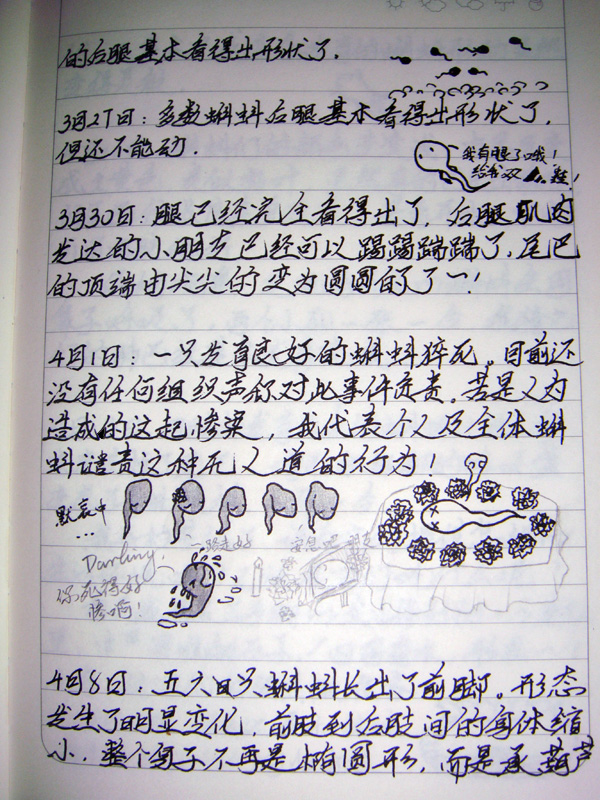 的后腿基本看得出形状了.
3月27日：多数蝌蚪后腿基本看得出形状了.
但还不能动.
我有腿了哦！
给我双
鞋！
3月30日：腿已经完全看得出了，后腿肌肉
发达的小朋友已经可以踢踢踹踹了，尾巴
的顶端由尖尖的变为圆圆的了一！
4月1日：一只发育良好的蝌蚪猝死。目前还
没有任何组织声称对此事件负责，若是人为
造成的这起惨案，我代表个人及全体蝌
蚪谴责这种无人道的行为！
默哀中
...
一路走好
安息吧 朋友
Darling,
你死得好
惨啊！
4月8日：五六只蝌蚪长出了前脚。形态
发生了明显变化，前肢到后肢间的身体缩
小，整个身子不再是椭圆形，而是呈葫芦